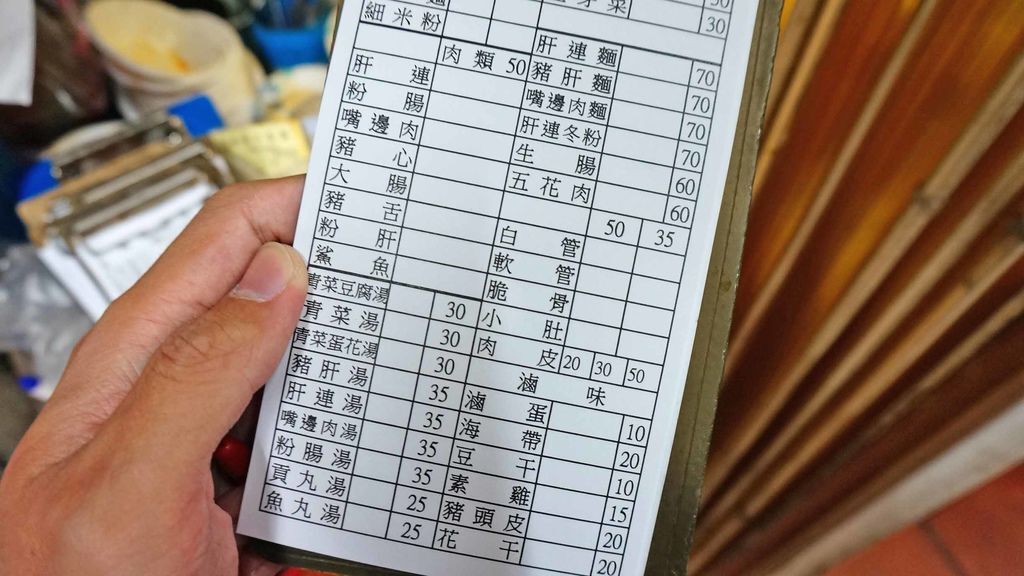 細米粉
肉類 50
肝連
粉腸
嘴邊肉
豬心
大腸
豬舌
粉肝
鯊魚
青菜豆腐湯 30
青菜湯 30
青菜蛋花湯 30
豬肝湯 35
肝連湯 35
嘴邊肉湯 35
粉腸湯 35
頁丸湯 25
魚丸湯 25
芽菜 30
肝連麵 70
豬肝麵 70
嘴邊肉麵 70
肝連冬粉 70
生腸 60
五花肉 60
50 35
白管
軟管
脆骨
小肚
肉皮 20 30 50
滷味
滷蛋 10
海帶 20
豆干 10
素雞 15
豬頭皮 20
花干 20